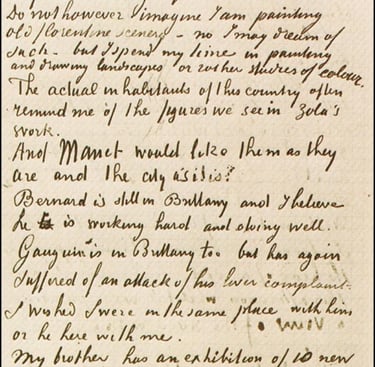 Do not however imagine I am painting
old florentine scenery – no I may dream of
such – but I spend my time in painting
and drawing landscapes or rather studies of colour.
The actual inhabitants of this country often
remind me of the figures we see in Zola's
work.
And Manet would like them as they
are and the city as it is.
Bernard is still in Brittany and I believe
he is working hard and doing well.
Gauguin is in Brittany too but has again
suffered of an attack of his liver complaint.
I wished I were in the same place with him
or he here with me.
My brother has an exhibition of 10 new